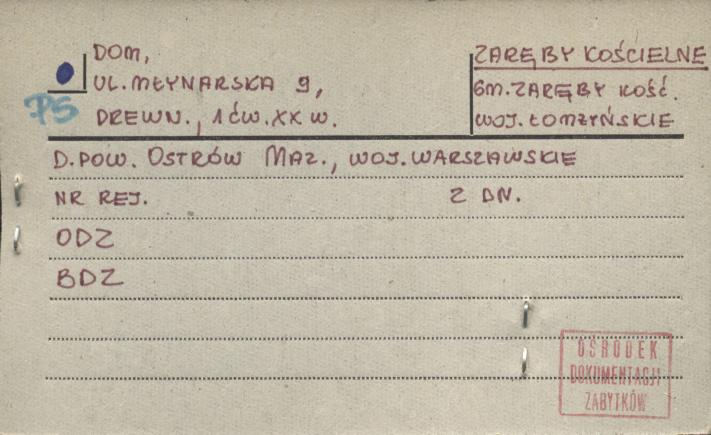 DOM,
UL. MŁYNARSKA 9,
DREWN., 1 ĆW. XX W.
PS
ZARĘBY KOŚCIELNE
GM. ZARĘBY KOŚĆ.
WOJ. ŁOMZYŃSKIE
D. POW. OSTRÓW MAZ., WOJ. WARSZAWSKIE
NR REJ. Z DN.
ODZ
BDZ
OŚRODEK
DOKUMENTACJI
ZABYTKÓW